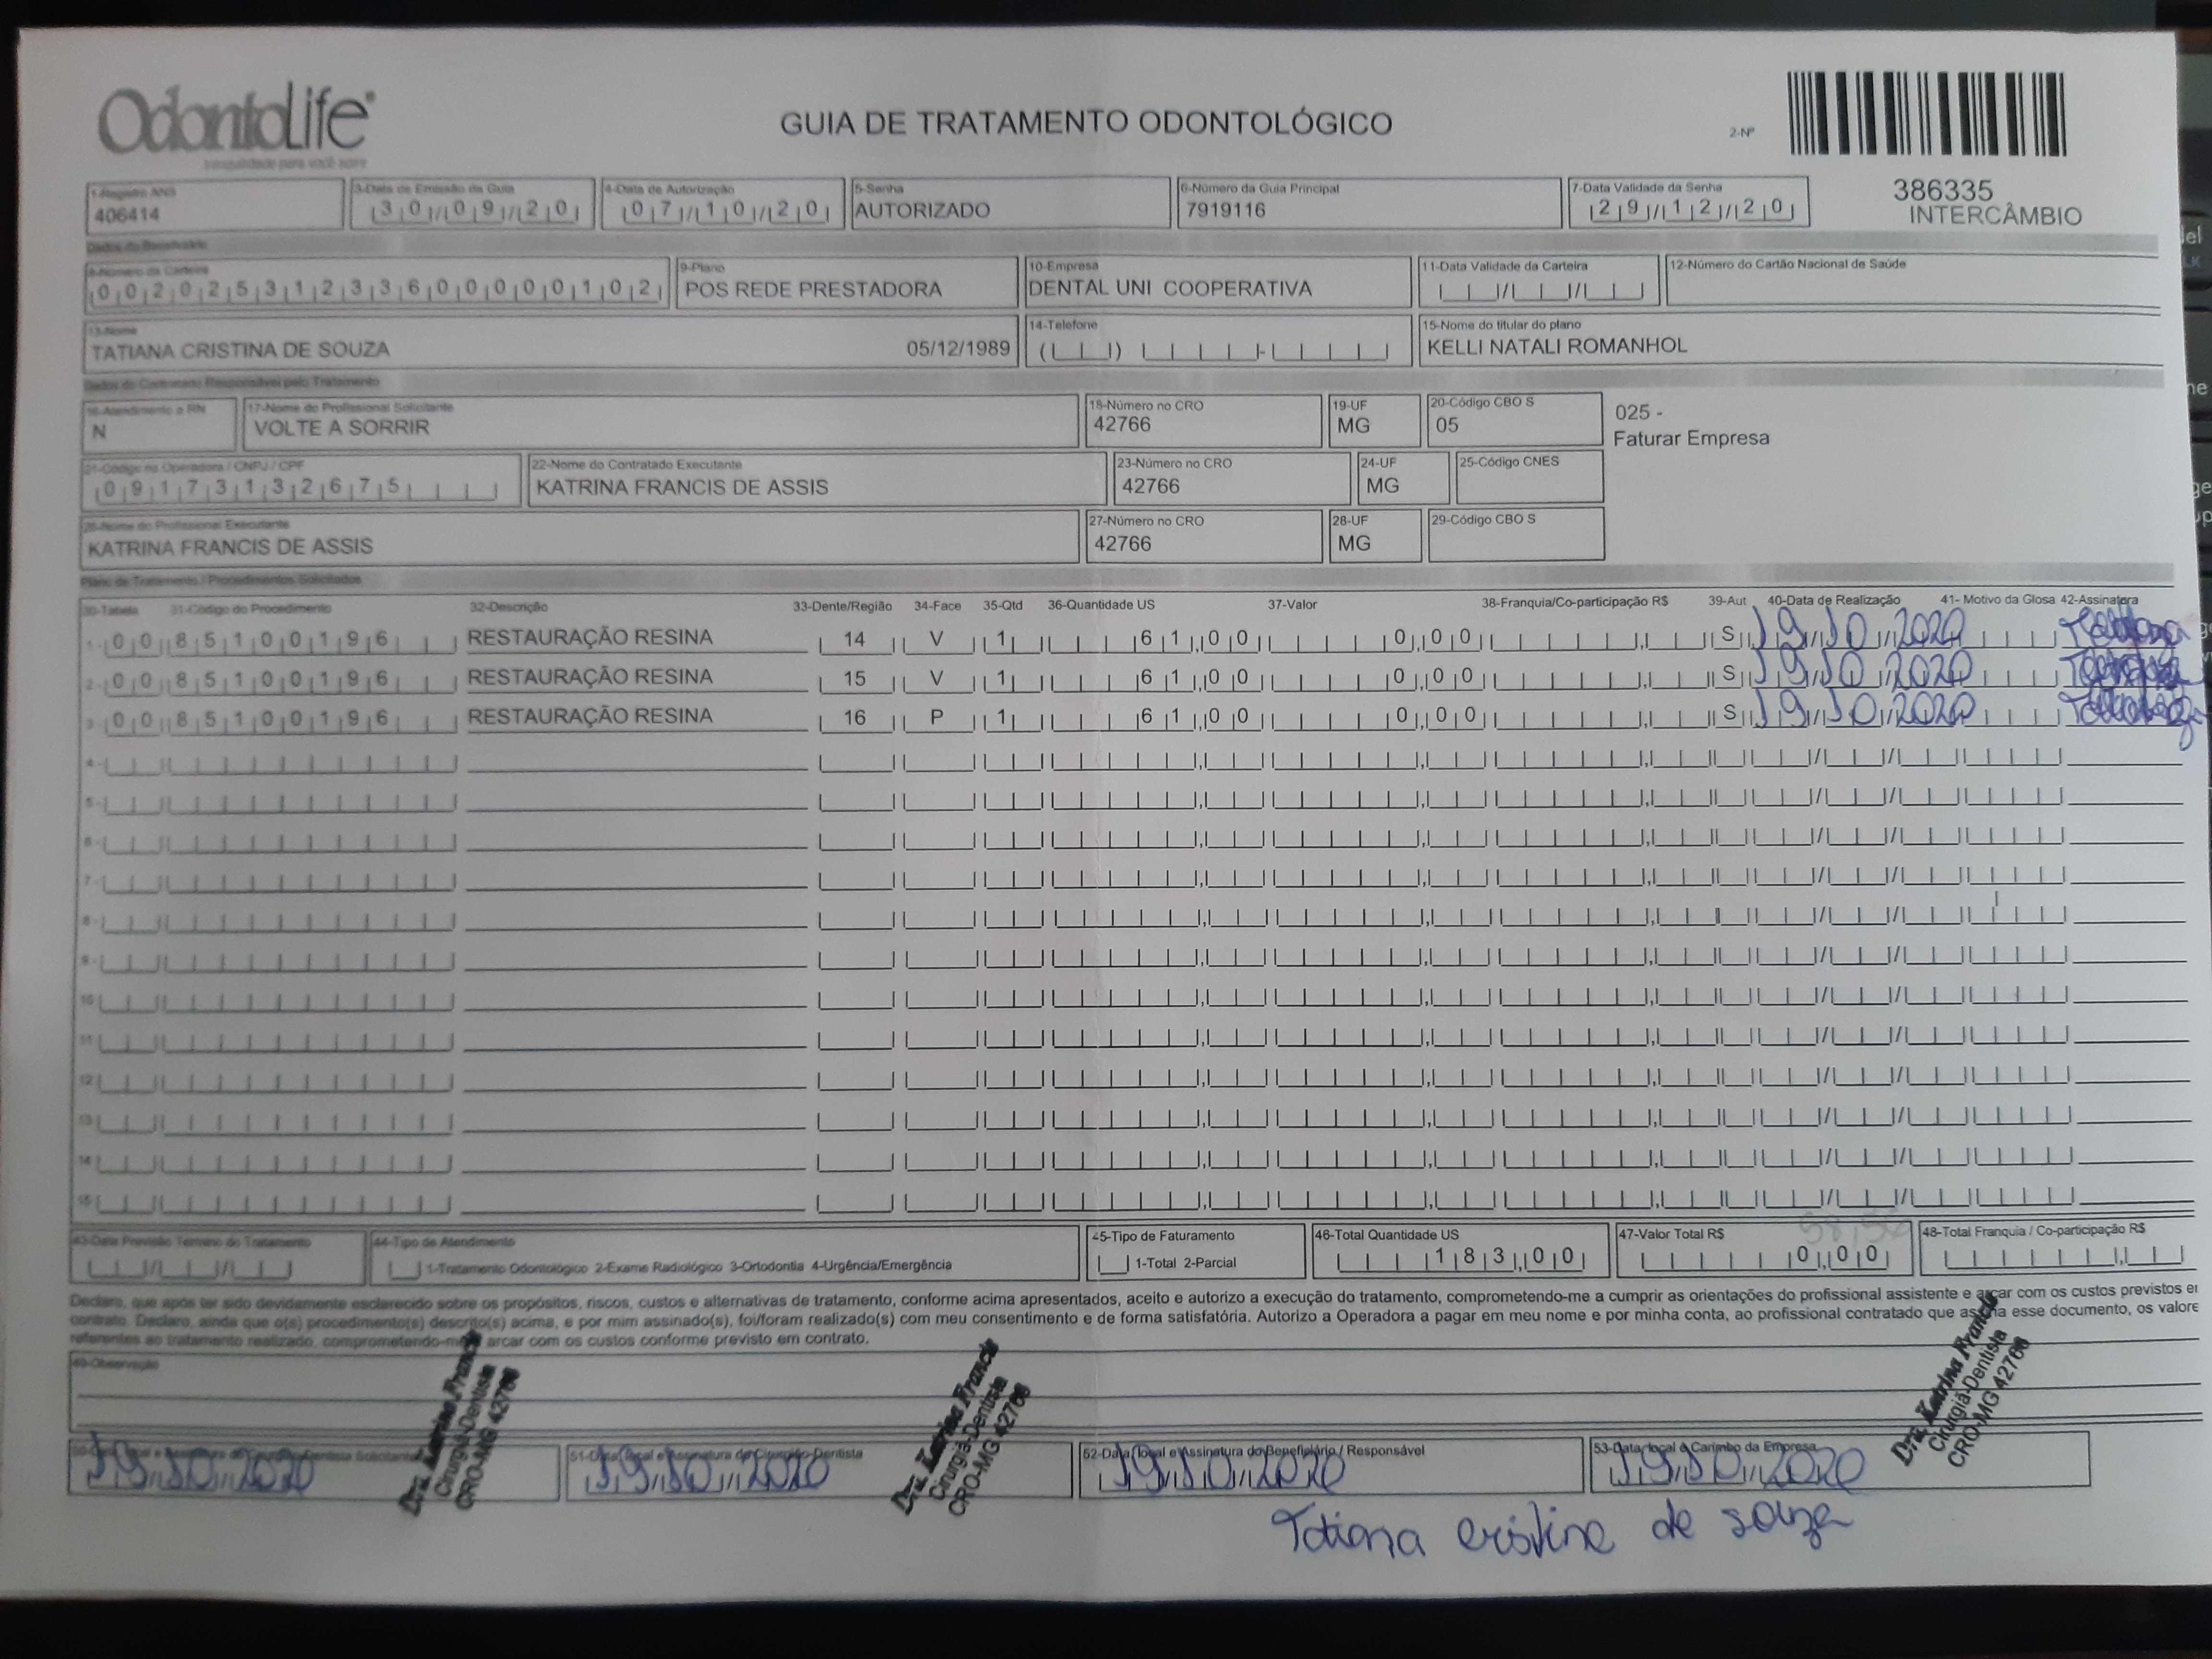 OdontoLife®
tranquilidade para você sorrir
GUIA DE TRATAMENTO ODONTOLÓGICO
2-Nº
386335
INTERCÂMBIO
1-Registro ANS
406414
3-Data de Emissão da Guia
30/09/20
4-Data de Autorização
07/10/20
5-Senha
AUTORIZADO
6-Número da Guia Principal
7919116
7-Data Validade da Senha
29/12/20
Dados do Beneficiário
8-Número da Carteira
00202531233600000102
9-Plano
POS REDE PRESTADORA
10-Empresa
DENTAL UNI COOPERATIVA
11-Data Validade da Carteira
12-Número do Cartão Nacional de Saúde
13-Nome
TATIANA CRISTINA DE SOUZA 05/12/1989
14-Telefone
15-Nome do titular do plano
KELLI NATALI ROMANHOL
Dados do Contratado Responsável pelo Tratamento
16-Atendimento a RN
N
17-Nome do Profissional Solicitante
VOLTE A SORRIR
18-Número no CRO
42766
19-UF
MG
20-Código CBO S
05
025 -
Faturar Empresa
21-Código na Operadora / CNPJ / CPF
09173132675
22-Nome do Contratado Executante
KATRINA FRANCIS DE ASSIS
23-Número no CRO
42766
24-UF
MG
25-Código CNES
26-Nome do Profissional Executante
KATRINA FRANCIS DE ASSIS
27-Número no CRO
42766
28-UF
MG
29-Código CBO S
Plano de Tratamento / Procedimentos Solicitados
30-Tabela 31-Código do Procedimento 32-Descrição 33-Dente/Região 34-Face 35-Qtd 36-Quantidade US 37-Valor 38-Franquia/Co-participação R$ 39-Aut 40-Data de Realização 41- Motivo da Glosa 42-Assinatura
1- 00 85100196 RESTAURAÇÃO RESINA 14 V 1 61,00 0,00 S 19/10/2020 Tatiana
2- 00 85100196 RESTAURAÇÃO RESINA 15 V 1 61,00 0,00 S 19/10/2020 Tatiana
3- 00 85100196 RESTAURAÇÃO RESINA 16 P 1 61,00 0,00 S 19/10/2020 Tatiana
4-
5-
6-
7-
8-
9-
10
11
12
13
14
15
43-Data Previsão Término do Tratamento
44-Tipo de Atendimento
1-Tratamento Odontológico 2-Exame Radiológico 3-Ortodontia 4-Urgência/Emergência
45-Tipo de Faturamento
1-Total 2-Parcial
46-Total Quantidade US
183,00
47-Valor Total R$
0,00
48-Total Franquia / Co-participação R$
Declaro, que após ter sido devidamente esclarecido sobre os propósitos, riscos, custos e alternativas de tratamento, conforme acima apresentados, aceito e autorizo a execução do tratamento, comprometendo-me a cumprir as orientações do profissional assistente e arcar com os custos previstos e
contrato. Declaro, ainda que o(s) procedimento(s) descrito(s) acima, e por mim assinado(s), foi/foram realizado(s) com meu consentimento e de forma satisfatória. Autorizo a Operadora a pagar em meu nome e por minha conta, ao profissional contratado que assina esse documento, os valore
referentes ao tratamento realizado, comprometendo-me arcar com os custos conforme previsto em contrato.
49-Observação
50-Data, local e Assinatura do Cirurgião-Dentista Solicitante
19/10/2020
Dra. Katrina Francis
Cirurgiã-Dentista
CRO-MG 42766
51-Data, local e Assinatura do Cirurgião-Dentista
19/10/2020
Dra. Katrina Francis
Cirurgiã-Dentista
CRO-MG 42766
52-Data, local e Assinatura do Beneficiário / Responsável
19/10/2020
53-Data, local e Carimbo da Empresa
19/10/2020
Dra. Katrina Francis
Cirurgiã-Dentista
CRO-MG 42766
Tatiana cristina de souza